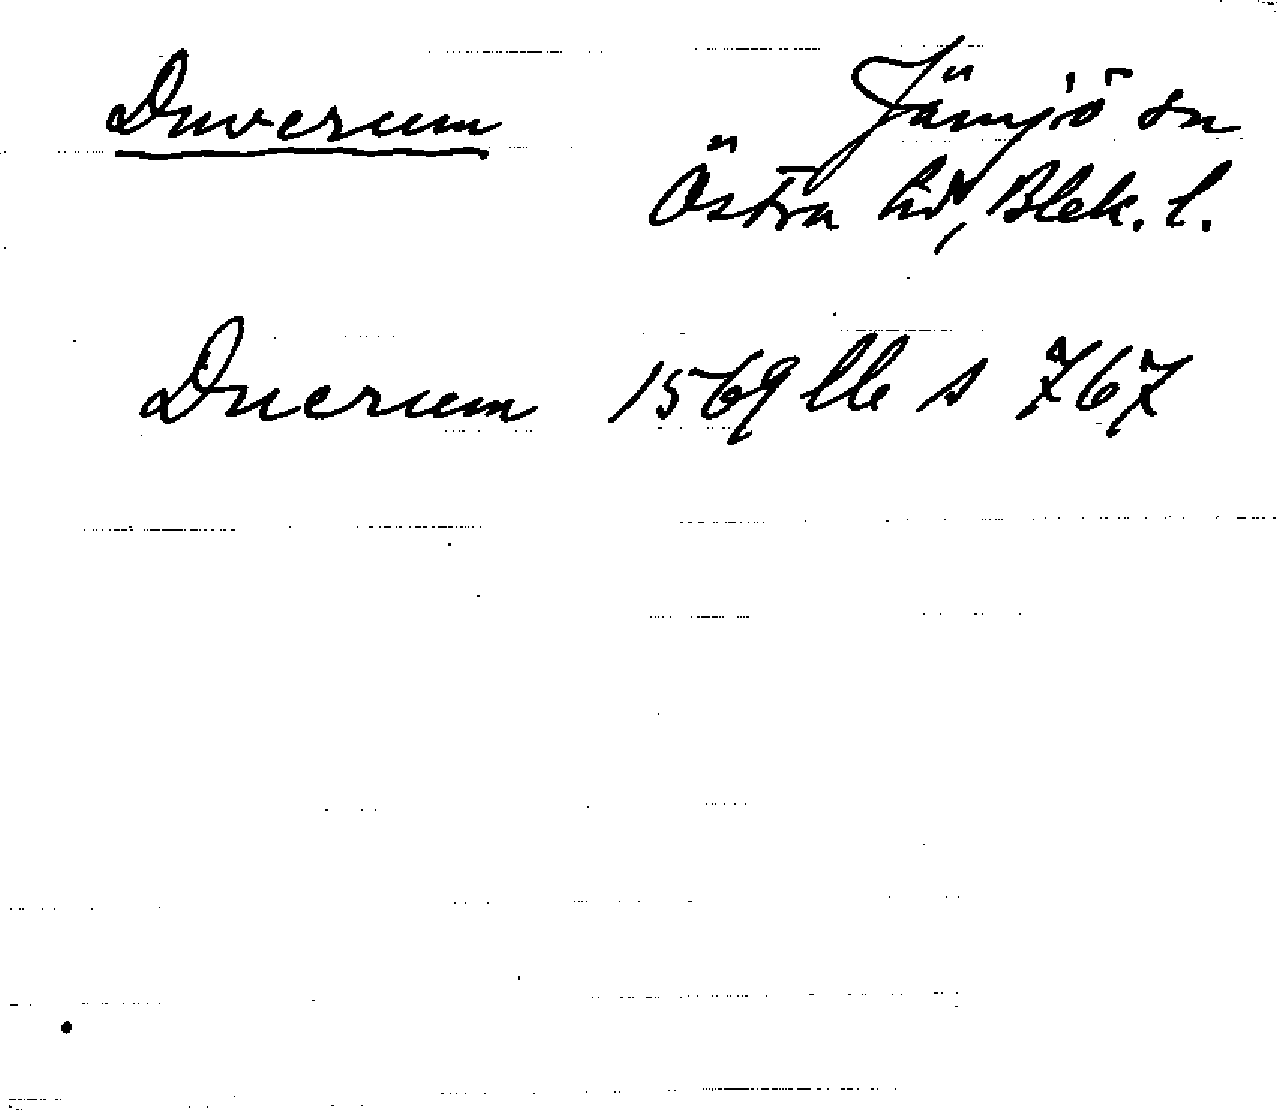 Duverum Jämjö sn
Östra hd, Blek. l.
Duerum 1569 lle s 767